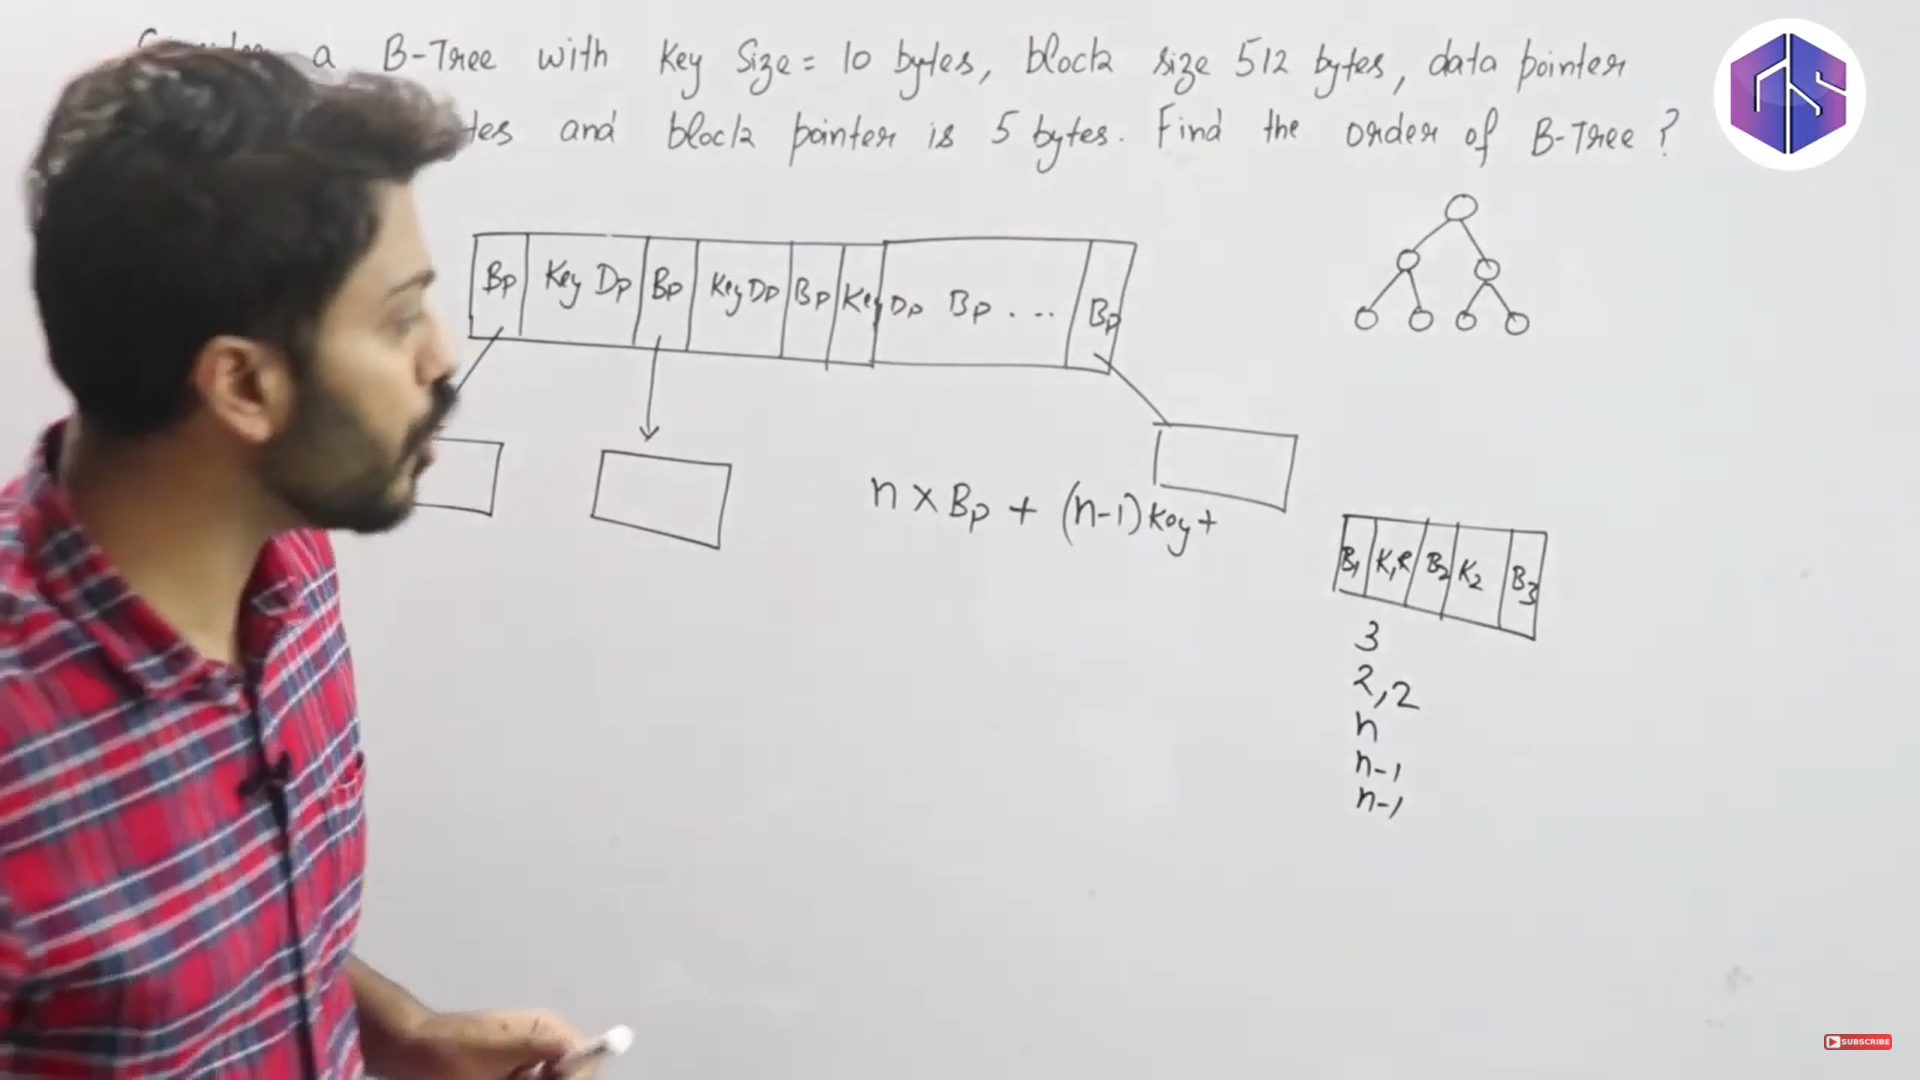 a B-Tree with Key Size = 10 bytes, block size 512 bytes, data pointer
and block pointer is 5 bytes. Find the order of B-Tree ?
Bp Key Dp Bp Key Dp Bp Key Dp Bp .... Bp
n × Bp + (n-1) Key +
B1 K1 R B2 K2 B3
3
2,2
n
n-1
n-1
GS
SUBSCRIBE